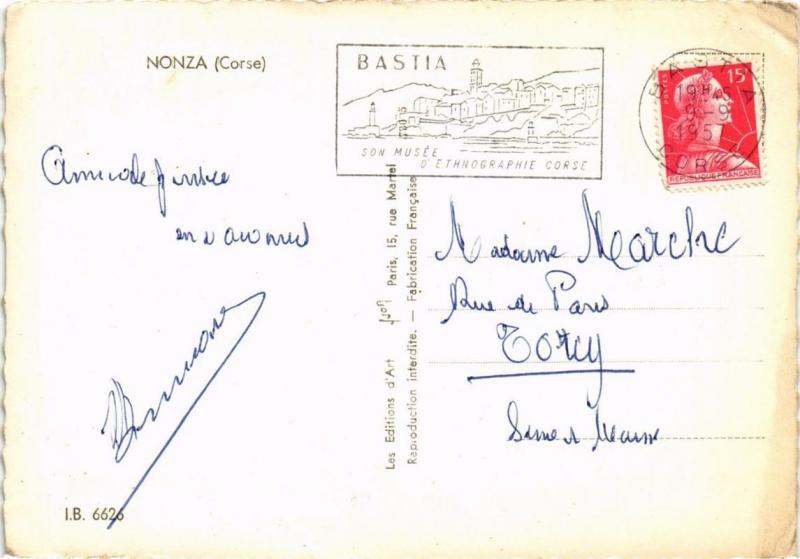 NONZA (Corse)
BASTIA
SON MUSÉE
D'ETHNOGRAPHIE CORSE
BASTIA
19H45
9-9
195
CORSE
POSTES
15F
REPUBLIQUE FRANÇAISE
Madame
Rue de Paris
TORCY
Seine et Marne
Les Editions d'Art Yvon Paris, 15, rue Martel
Reproduction interdite. — Fabrication Française
I.B. 6626